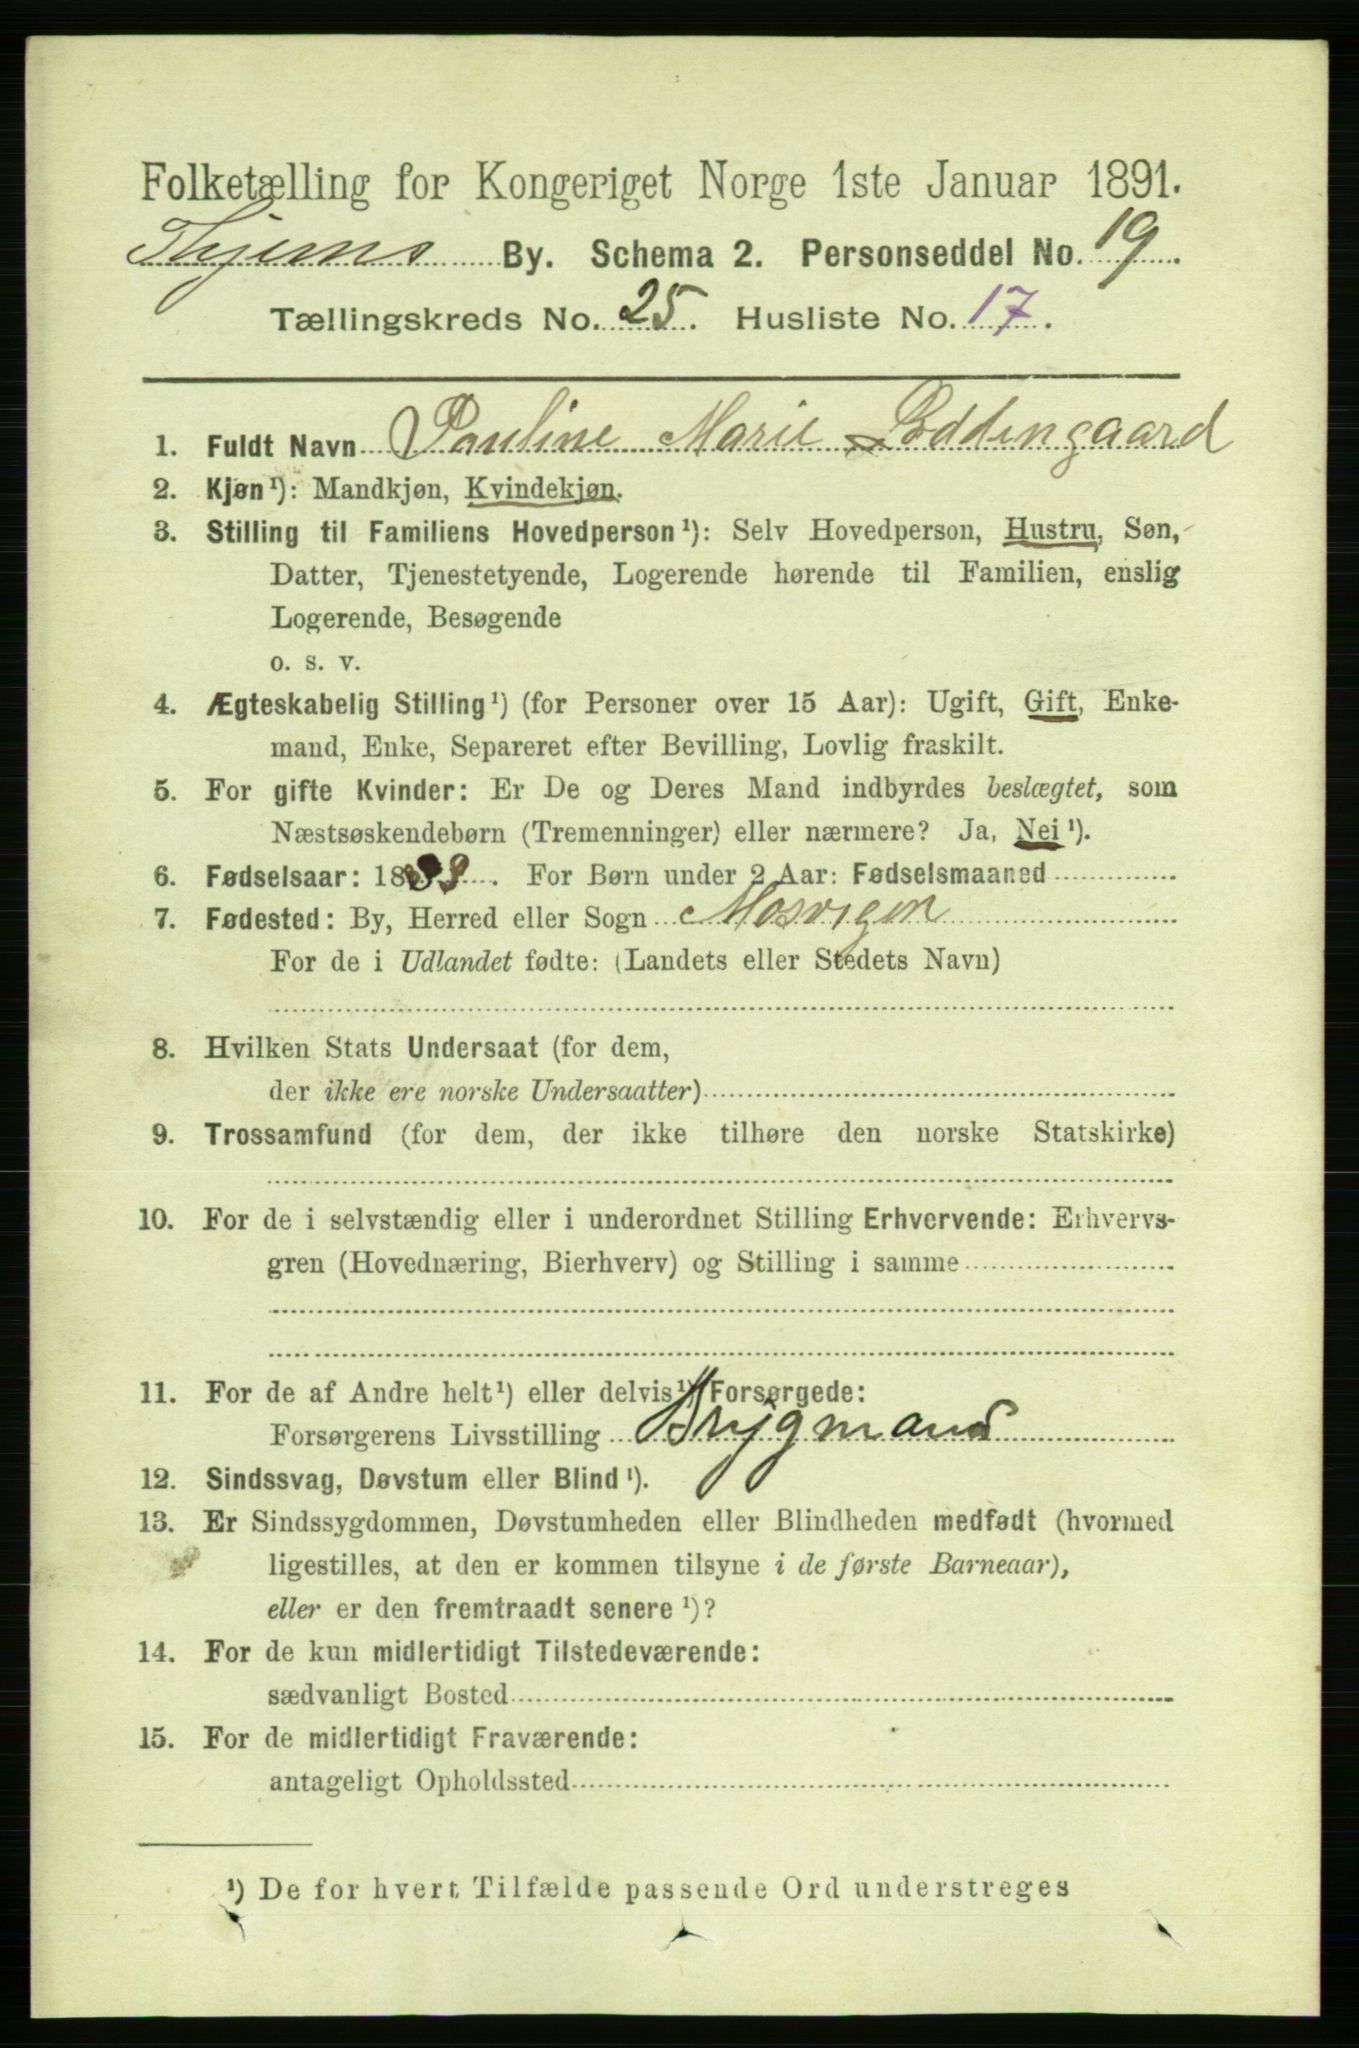 Folketælling for Kongeriget Norge 1ste Januar 1891.
Thjems By. Schema 2. Personseddel No. 19.
Tællingskreds No. 25. Husliste No. 17.
1. Fuldt Navn Pauline Marie Loddengaard
2. Kjøn¹): Mandkjøn, Kvindekjøn.
3. Stilling til Familiens Hovedperson¹): Selv Hovedperson, Hustru, Søn,
Datter, Tjenestetyende, Logerende hørende til Familien, enslig
Logerende, Besøgende
o. s. v.
4. Ægteskabelig Stilling¹) (for Personer over 15 Aar): Ugift, Gift, Enke-
mand, Enke, Separeret efter Bevilling, Lovlig fraskilt.
5. For gifte Kvinder: Er De og Deres Mand indbyrdes beslægtet, som
Næstsøskendebørn (Tremenninger) eller nærmere? Ja, Nei¹).
6. Fødselsaar: 1839. For Børn under 2 Aar: Fødselsmaaned
7. Fødested: By, Herred eller Sogn Mosvigen
For de i Udlandet fødte: (Landets eller Stedets Navn)
8. Hvilken Stats Undersaat (for dem,
der ikke ere norske Undersaatter)
9. Trossamfund (for dem, der ikke tilhøre den norske Statskirke)
10. For de i selvstændig eller i underordnet Stilling Erhvervende: Erhvervs-
gren (Hovednæring, Bierhverv) og Stilling i samme
11. For de af Andre helt¹) eller delvis¹) Forsørgede:
Forsørgerens Livsstilling Brygmand
12. Sindssvag, Døvstum eller Blind¹).
13. Er Sindssygdommen, Døvstumheden eller Blindheden medfødt (hvormed
ligestilles, at den er kommen tilsyne i de første Barneaar),
eller er den fremtraadt senere¹)?
14. For de kun midlertidigt Tilstedeværende:
sædvanligt Bosted
15. For de midlertidigt Fraværende:
antageligt Opholdssted
¹) De for hvert Tilfælde passende Ord understreges